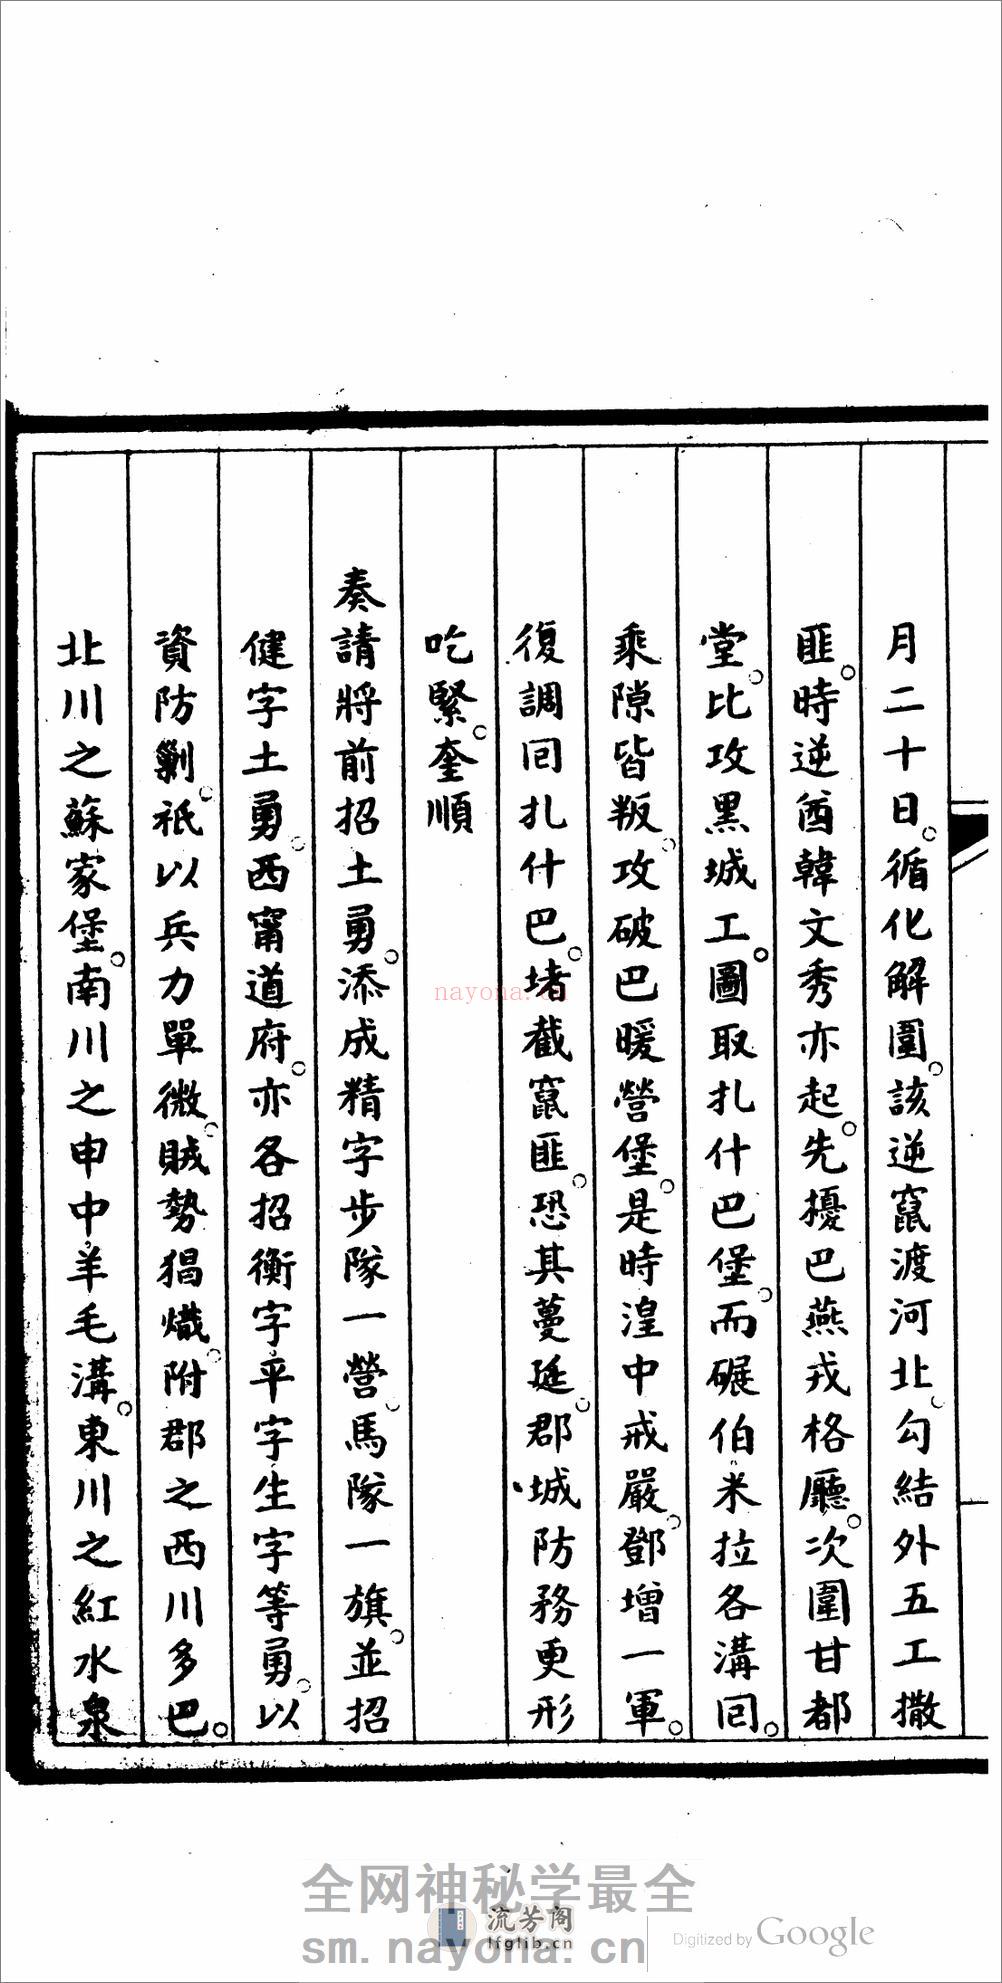 月二十日。循化解圍。該逆竄渡河北。勾結外五工撒
匪。時逆酋韓文秀亦起。先擾巴燕戎格廳。次圍甘都
堂。比攻黑城工。圖取扎什巴堡。而碾伯米拉各溝回。
乘隙皆叛。攻破巴暖營堡。是時湟中戒嚴。鄧增一軍。
復調回扎什巴。堵截竄匪。恐其蔓延。郡城防務更形
吃緊。奎順
奏請將前招土勇。添成精字步隊一營。馬隊一旗。並招
健字土勇。西甯道府。亦各招衡字平字生字等勇。以
資防剿。祇以兵力單微。賊勢猖熾。附郡之西川多巴。
北川之蘇家堡。南川之申中羊毛溝。東川之紅水泉
nayona.cn
全网神秘学最全
流芳阁
lfglib.cn
sm.nayona.cn
Digitized by Google